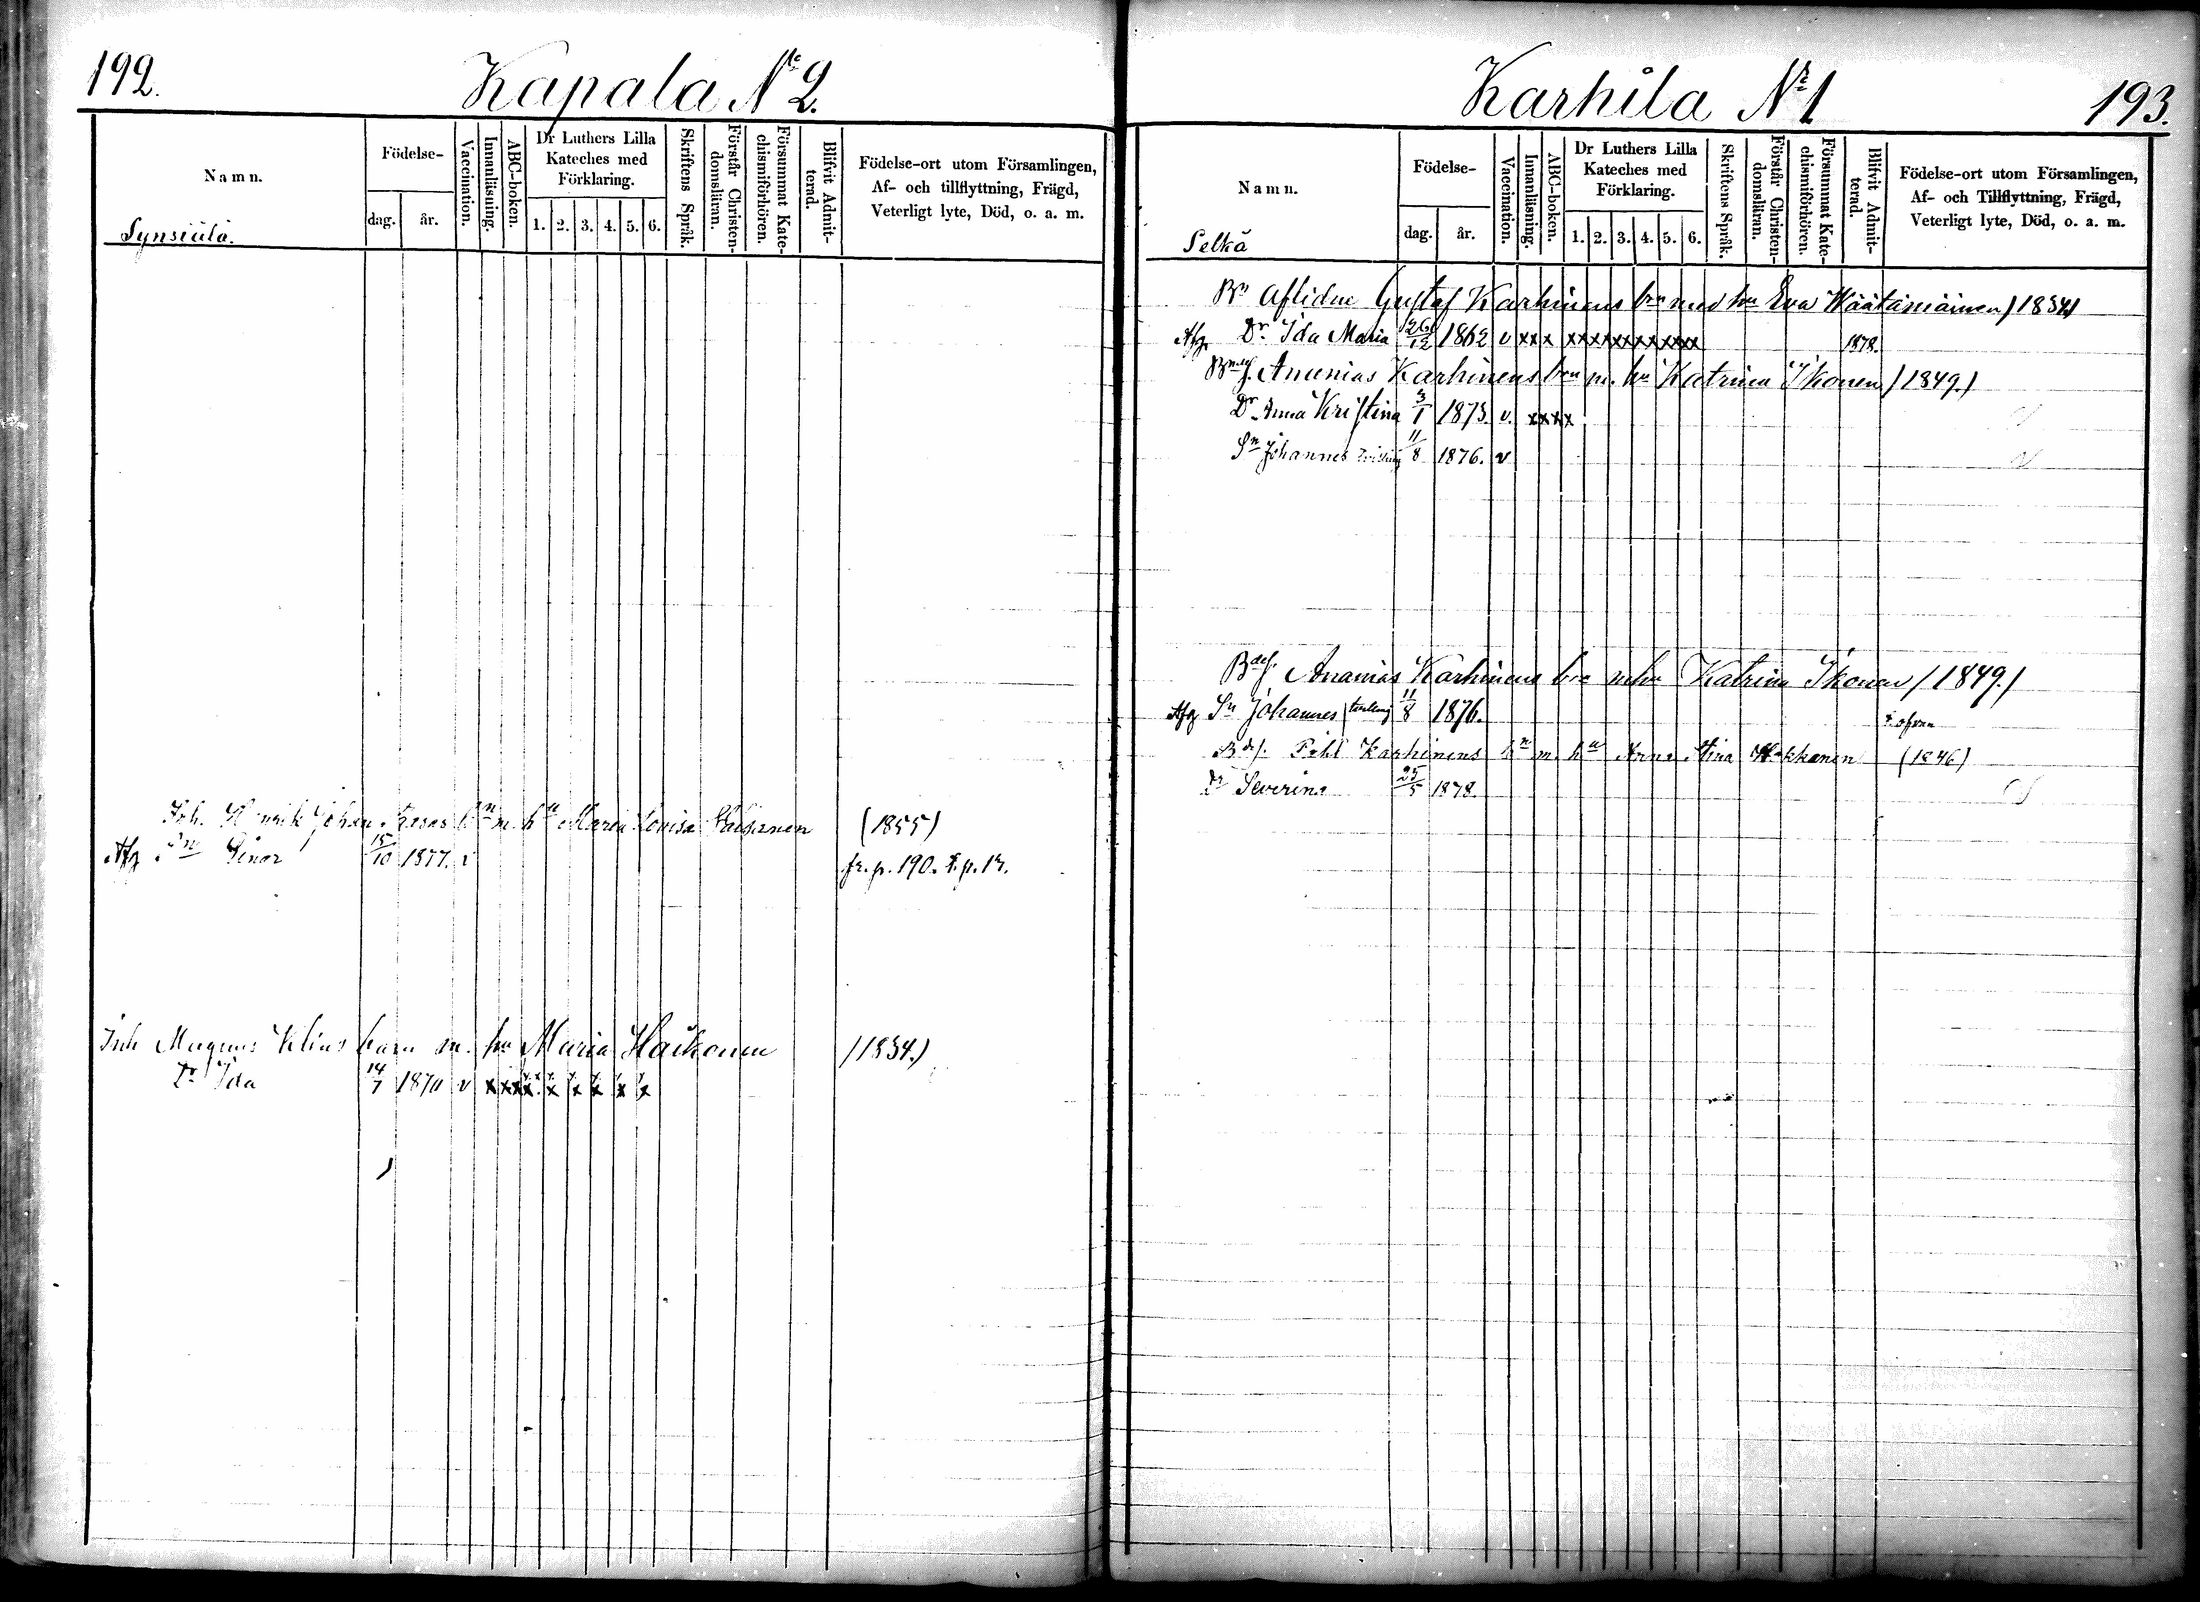 192.
Kapala No 2.
Namn.
Födelse-
dag. år.
Vaccination.
Innanläsning.
ABC-boken.
Dr Luthers Lilla Kateches med Förklaring.
1. 2. 3. 4. 5. 6.
Skriftens Språk.
Förstår Christendomsläran.
Försummat Katechismiförhören.
Blifvit Admitterad.
Födelse-ort utom Församlingen,
Af- och tillflyttning, Frägd,
Veterligt lyte, Död, o. a. m.
Synsiälä.
Inh. Henrik Johan bn m. hu Maria Lovisa (1855)
Afg Sn 15/10 1877. v fr. p. 190. t. p. 13.
Inh Magnus barn m. hu Maria Haikonen (1834.)
Dr Ida 14/7 1870 v x x x x x x x x x x
Karhila Nr 1
193.
Namn.
Födelse-
dag. år.
Vaccination.
Innanläsning.
ABC-boken.
Dr Luthers Lilla Kateches med Förklaring.
1. 2. 3. 4. 5. 6.
Skriftens Språk.
Förstår Christendomsläran.
Försummat Katechismiförhören.
Blifvit Admitterad.
Födelse-ort utom Församlingen,
Af- och Tillflyttning, Frägd,
Veterligt lyte, Död, o. a. m.
Selkä
Bn Aflidne Gustaf Karhinens brn med hu Eva Määtämäinen (1834)
Afg. Dr. Ida Maria 26/12 1862 v xxx xxxxxxxxxxx 1878.
Ananias Karhinens brn m. hu Katrina Ikonen (1849.)
Dr Anna Kristina 3/1 1873. v. xxxx
Sn Johannes tvilling 11/8 1876. v
Bdes. Ananias Karhinens brn m hu Katrina Ikonen (1849.)
Afg Sn Johannes tvilling 11/8 1876. t. ofvan
Bdes. Karhinens bn m. hu Anna Stina (1846)
dr Severina 25/5 1878.